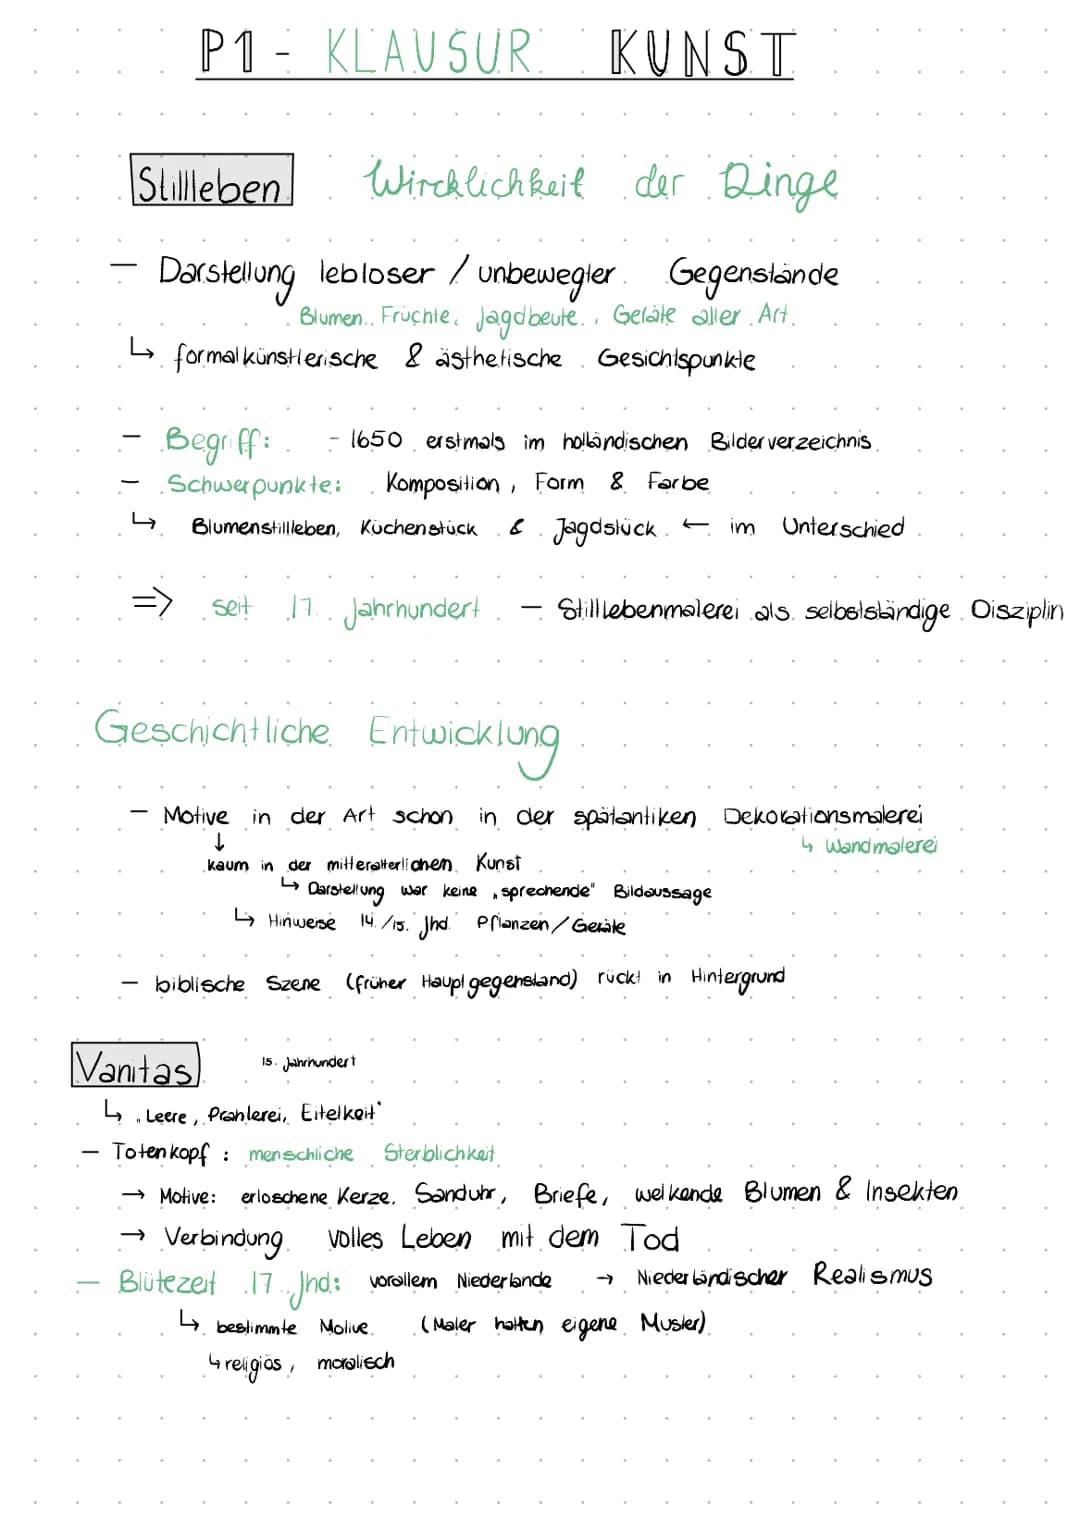 P1 - KLAUSUR KUNST
Stillleben Wircklichkeit der Dinge
— Darstellung lebloser / unbewegter Gegenstände
Blumen, Früchte, Jagdbeute, Geräte aller Art
↳ formalkünstlerische & ästhetische Gesichtspunkte
— Begriff: - 1650 erstmals im holländischen Bilderverzeichnis
— Schwerpunkte: Komposition, Form & Farbe
↳ Blumenstillleben, Küchenstück & Jagdstück ← im Unterschied
=> seit 17. Jahrhundert — Stilllebenmalerei als selbstständige Disziplin
Geschichtliche Entwicklung
— Motive in der Art schon in der spätantiken Dekorationsmalerei
↳ Wandmalerei
↓
kaum in der mittelalterlichen Kunst
↳ Darstellung war keine „sprechende" Bildaussage
↳ Hinweise 14./15. Jhd. Pflanzen/Geräte
— biblische Szene (früher Hauptgegenstand) rückt in Hintergrund
Vanitas 15. Jahrhundert
↳ „Leere, Prahlerei, Eitelkeit"
— Totenkopf: menschliche Sterblichkeit
→ Motive: erloschene Kerze, Sanduhr, Briefe, welkende Blumen & Insekten
→ Verbindung volles Leben mit dem Tod
— Blütezeit 17. Jhd: vorallem Niederlande → Niederländischer Realismus
↳ bestimmte Motive (Maler hatten eigene Muster)
↳ religiös, moralisch